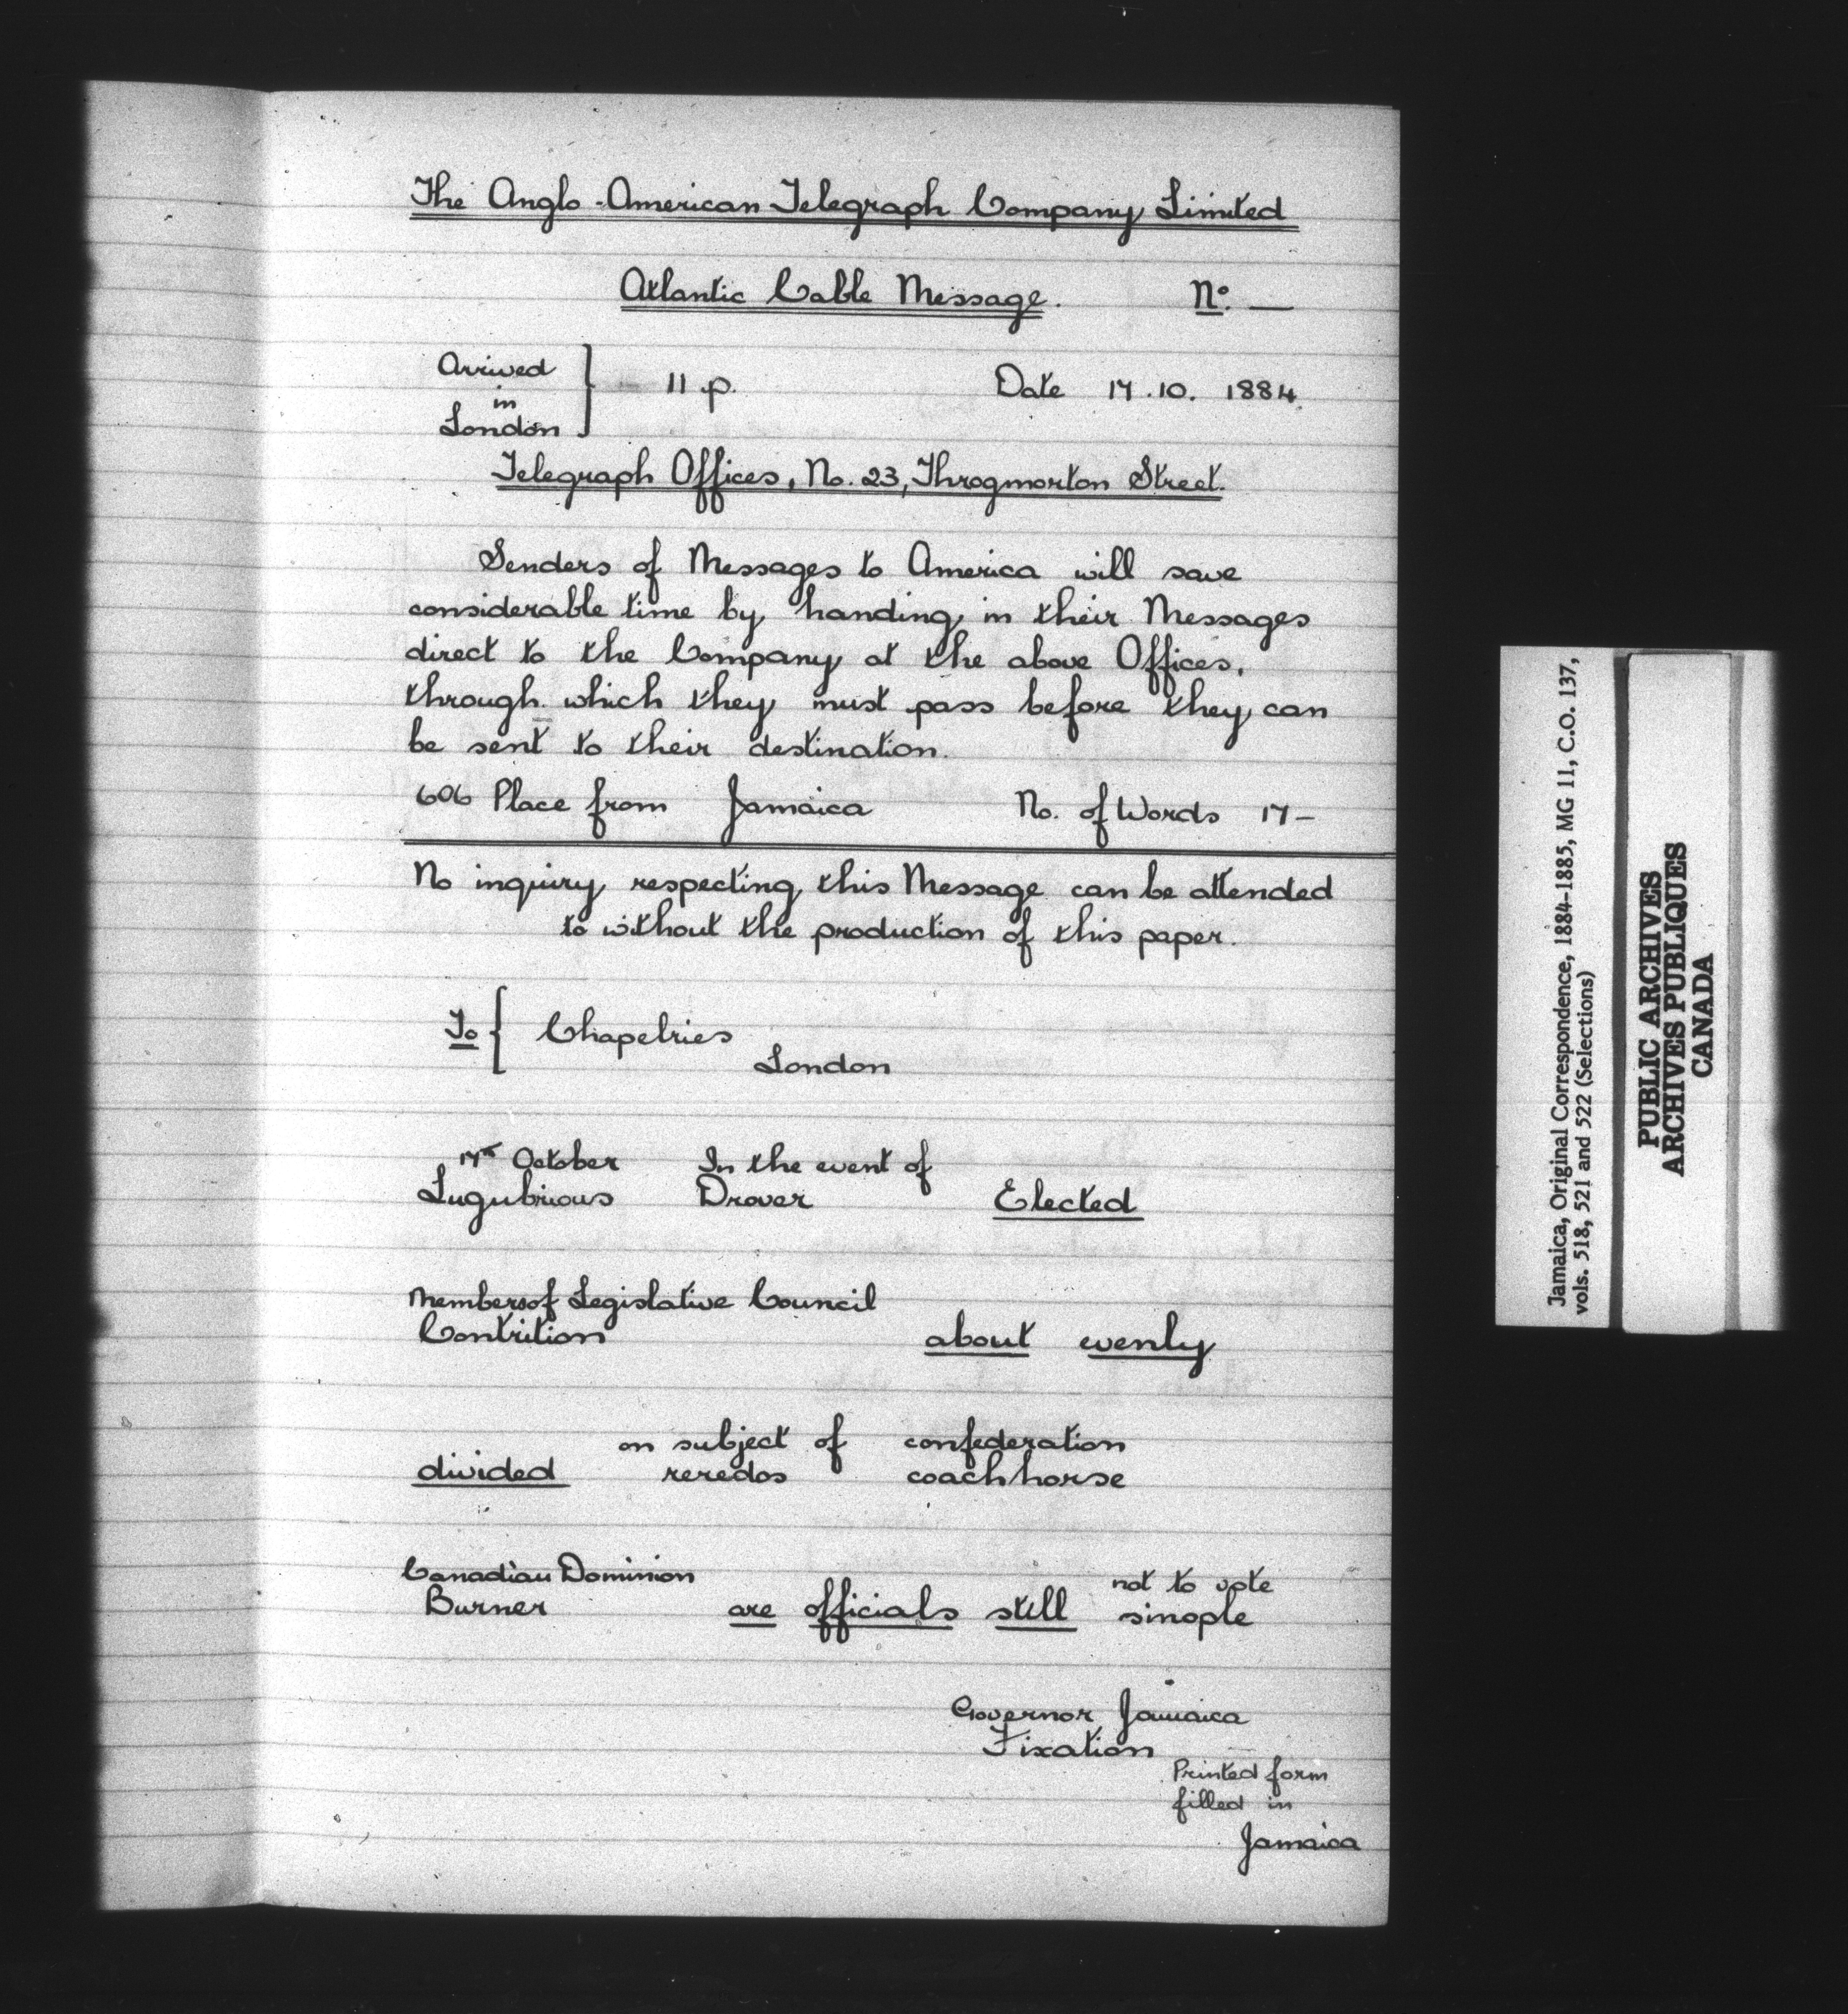 The Anglo-American Telegraph Company Limited
Atlantic Cable Message. No. —
Arrived
in
London } 11 p. Date 17.10.1884.
Telegraph Offices, No. 23, Throgmorton Street.
Senders of Messages to America will save
considerable time by handing in their Messages
direct to the Company at the above Offices,
through which they must pass before they can
be sent to their destination.
606 Place from Jamaica No. of Words 17-
No inquiry respecting this Message can be attended
to without the production of this paper.
To { Chapelries
London
17th October In the event of
Lugubrious Drover Elected
Members of Legislative Council
Contrition about evenly
on subject of confederation
divided reredos coachhorse
Canadian Dominion not to vote
Burner are officials still sinople
Governor Jamaica
Fixation
Printed form
filled in
Jamaica
Jamaica, Original Correspondence, 1884-1885, MG 11, C.O. 137,
vols. 518, 521 and 522 (Selections)
PUBLIC ARCHIVES
ARCHIVES PUBLIQUES
CANADA